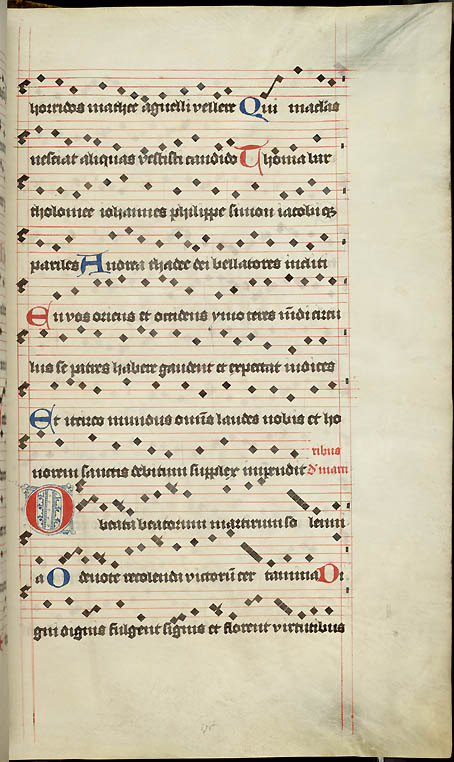 horridos mathee agnelli vellere Qui maclas
nesciat aliquas vestisti candido Thoma bar
tholomee iohannes philippe simon iacobiq;
pariles Andrea thadee dei bellatores incliti
En vos oriens et occidens ymo teres mūdi circu
lus se patres habere gaudent et expectat iudices
Et iccirco mundus omīs laudes vobis et ho
norem sanctis debitum supplex impendit
ribus
d' marti
O beata beatorum martirum so lenni
a O devote recolendi victoriū cer tamina Di
gni dignis fulgent signis et florent virtutibus